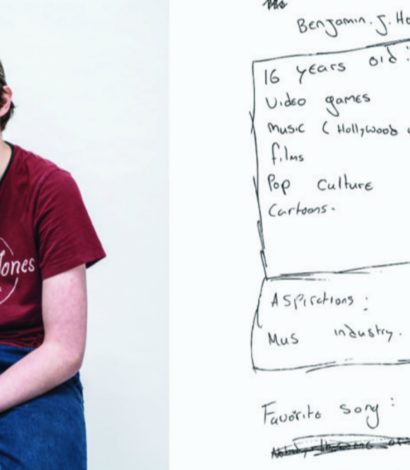 Jones
Benjamin.J.
16 years old:
Video games
Music (Hollywood
films
Pop Culture
Cartoons.
Aspirations:
Mus industry.
Favorite song: